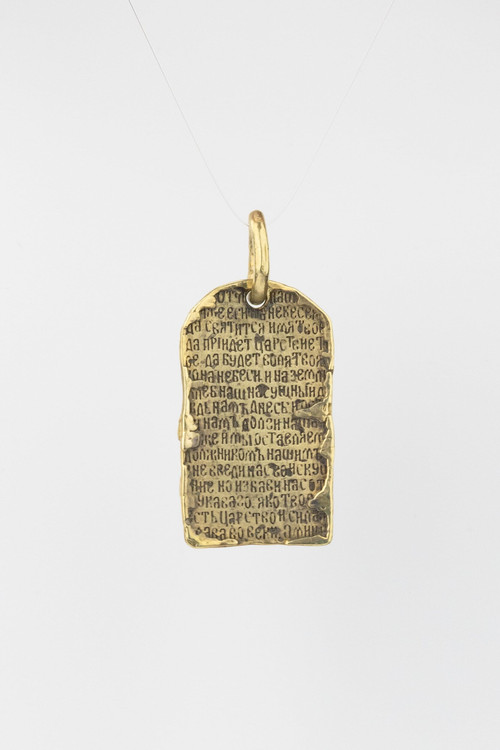 ОТЧ НАШ
ИЖЕ ЕСИ НА НЕБЕСЕХ
ДА СВЯТИТСЯ ИМЯ ТВОЕ
ДА ПРIИДЕТ ЦАРСТВIЕ Т
ОЕ ДА БУДЕТ ВОЛЯ ТВОЯ
КО НА НЕБЕСИ И НА ЗЕМЛ
ХЛЕБ НАШ НАСУЩНЫЙ Д
ДЬ НАМЪ ДНЕСЬ И
НАМЪ ДОЛГИ НА
ОЖЕ И МЫ ОСТАВЛЯЕМ
ДОЛЖНИКОМЪ НАШИМЪ
НЕ ВВЕДИ НАС ВО ИСКУ
НИЕ НО ИЗБАВИ НАС ОТ
УКАВАГО. ЯКО ТВО
ЕСТЬ ЦАРСТВО И СИЛА
ЛАВА ВО ВЕКИ. АМИНЬ